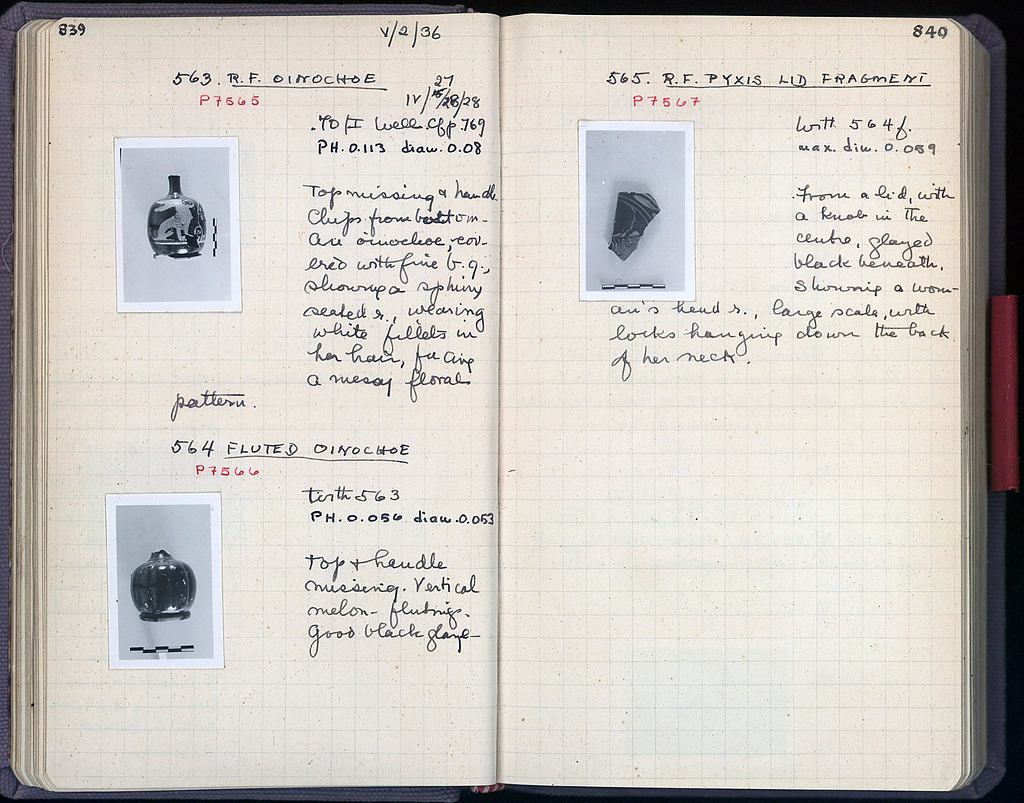 839
V/2/36
563. R.F. OINOCHOE
P7565
27
IV/28/28
70/I Well. Cf p. 769
PH. 0.113 diam. 0.08
Top missing & handle.
Chips from bottom.
An oinochoe, cov-
ered with fine b.g.,
showing a sphinx
seated r., wearing
white fillets in
her hair, facing
a messy floral
pattern.
564 FLUTED OINOCHOE
P7566
With 563
PH. 0.056 diam. 0.053
Top & handle
missing. Vertical
melon-flutings.
Good black glaze
840
565. R.F. PYXIS LID FRAGMENT
P7567
With 564 f.
max. dim. 0.059
From a lid, with
a knob in the
centre, glazed
black beneath.
Showing a wom-
an's head r., large scale, with
locks hanging down the back
of her neck.